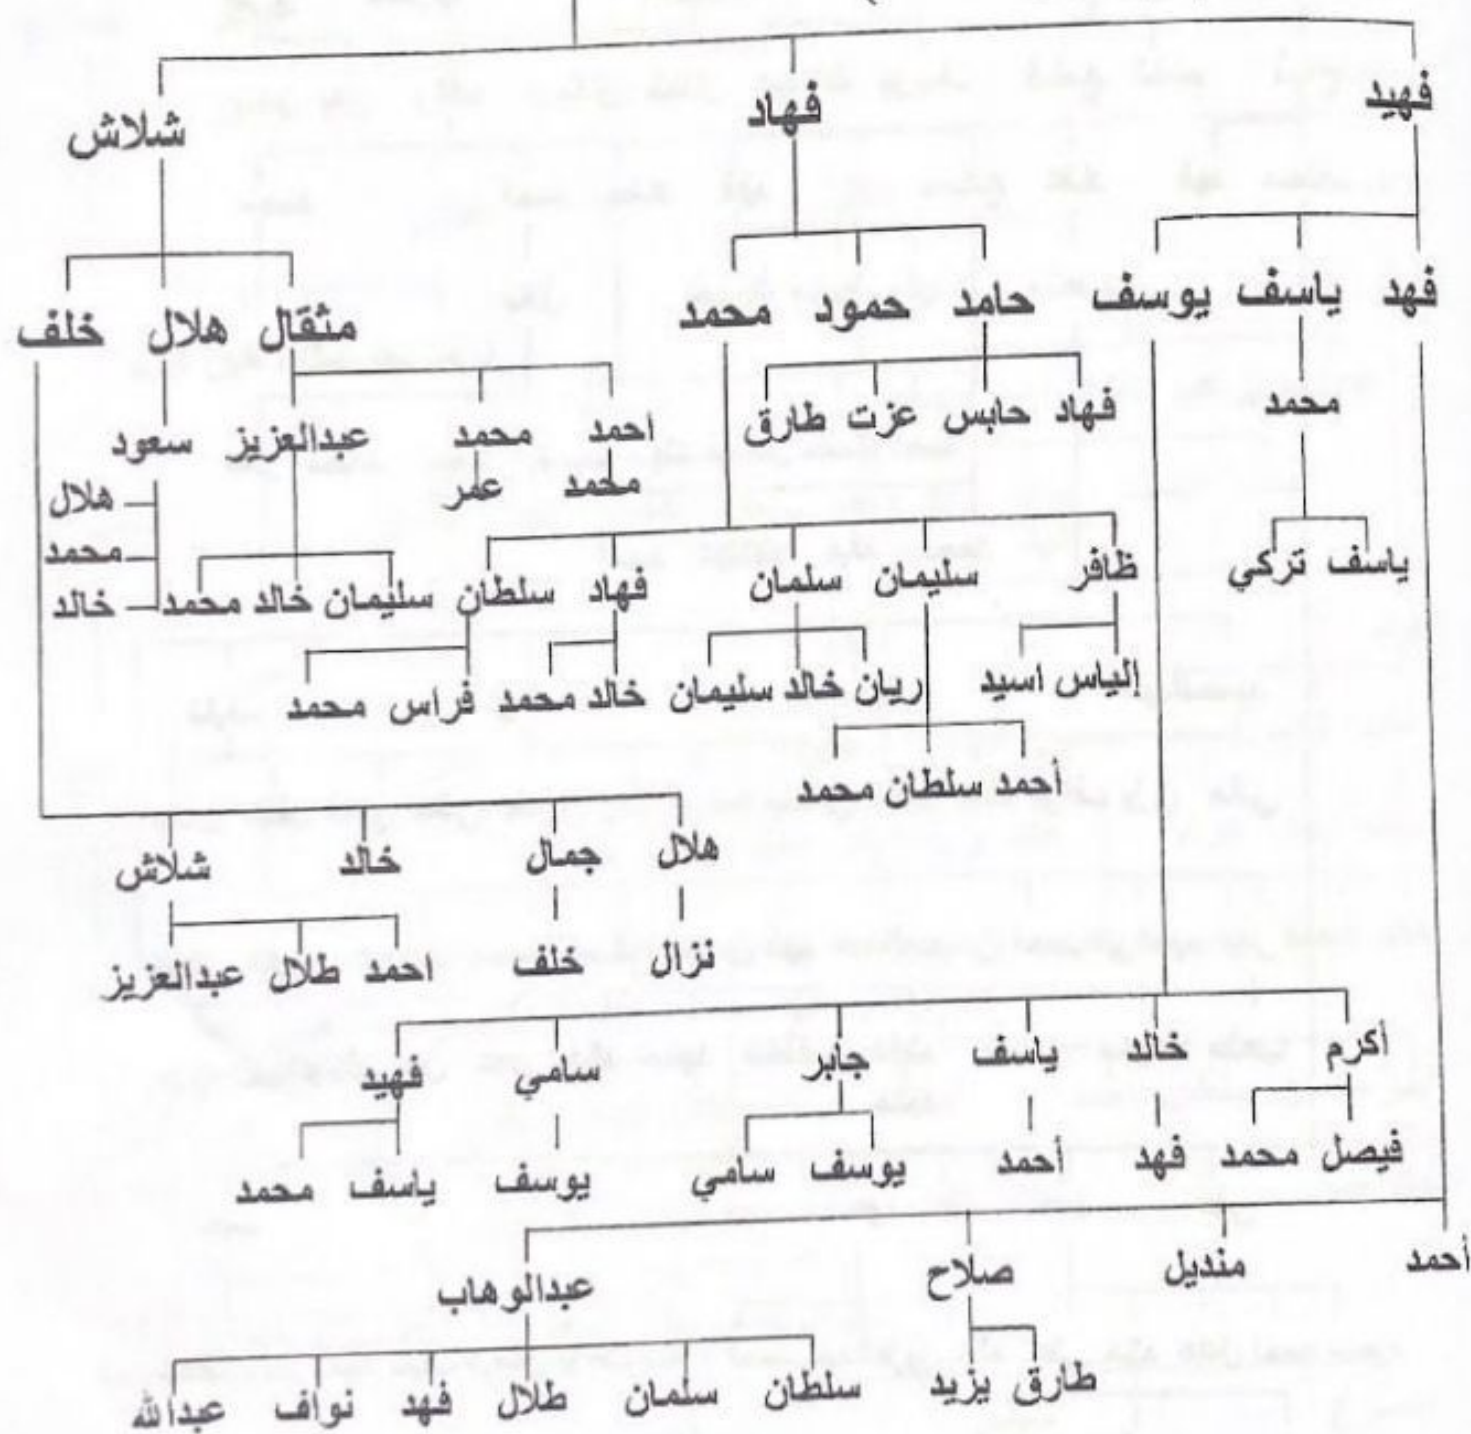 فهيد فهاد شلاش
فهد ياسف يوسف حامد حمود محمد مثقال هلال خلف
محمد فهاد حابس عزت طارق احمد محمد عبدالعزيز سعود
محمد عمر هلال
ياسف تركي ظافر سليمان سلمان فهاد سلطان محمد
سليمان خالد محمد خالد
إلياس اسيد ريان خالد سليمان خالد محمد فراس محمد
أحمد سلطان محمد
هلال جمال خالد شلاش
نزال خلف احمد طلال عبدالعزيز
أكرم خالد ياسف جابر سامي فهيد
فيصل محمد فهد أحمد يوسف سامي يوسف ياسف محمد
أحمد منديل صلاح عبدالوهاب
طارق يزيد سلطان سلمان طلال فهد نواف عبدالله